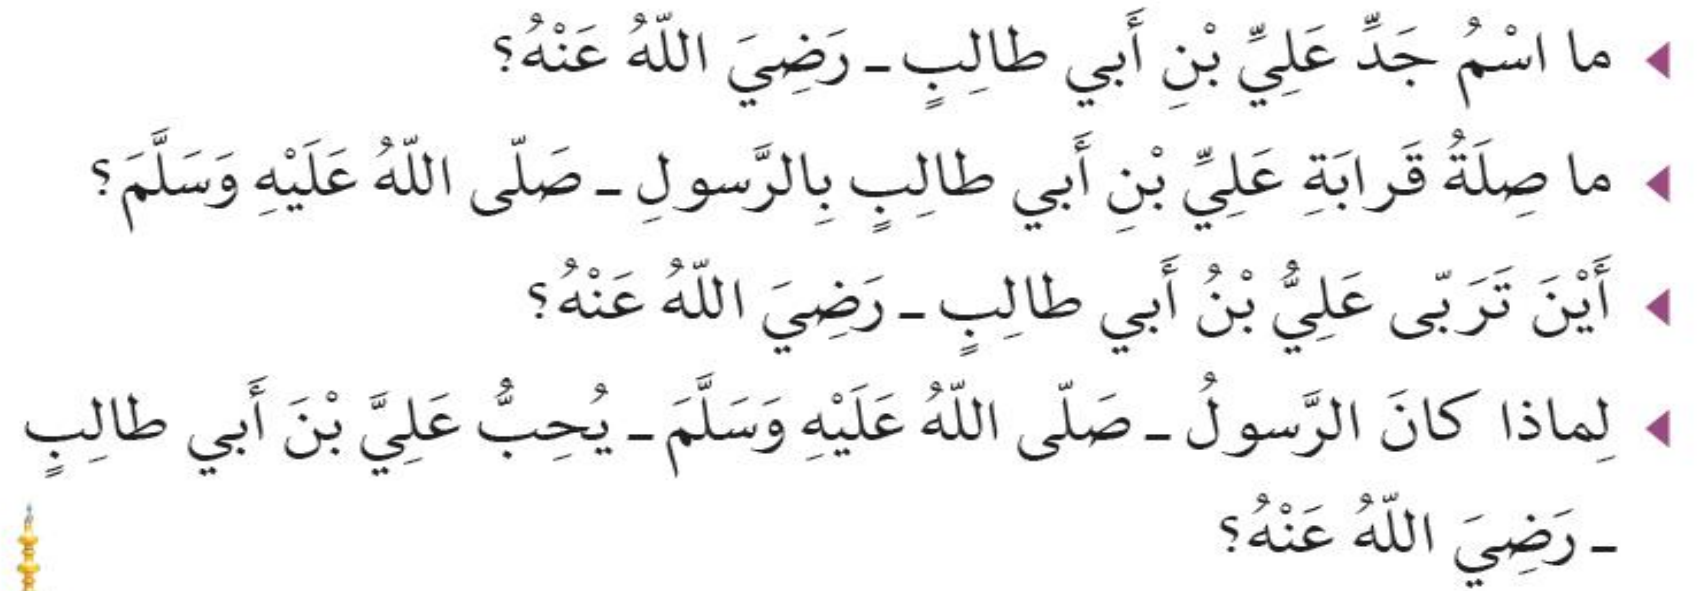 ما اسْمُ جَدِّ عَلِيِّ بْنِ أَبي طالِبٍ ـ رَضِيَ اللّهُ عَنْهُ؟
ما صِلَةُ قَرابَةِ عَلِيِّ بْنِ أَبي طالِبٍ بِالرَّسولِ ـ صَلّى اللّهُ عَلَيْهِ وَسَلَّمَ؟
أَيْنَ تَرَبّى عَلِيُّ بْنُ أَبي طالِبٍ ـ رَضِيَ اللّهُ عَنْهُ؟
لِماذا كانَ الرَّسولُ ـ صَلّى اللّهُ عَلَيْهِ وَسَلَّمَ ـ يُحِبُّ عَلِيَّ بْنَ أَبي طالِبٍ
ـ رَضِيَ اللّهُ عَنْهُ؟